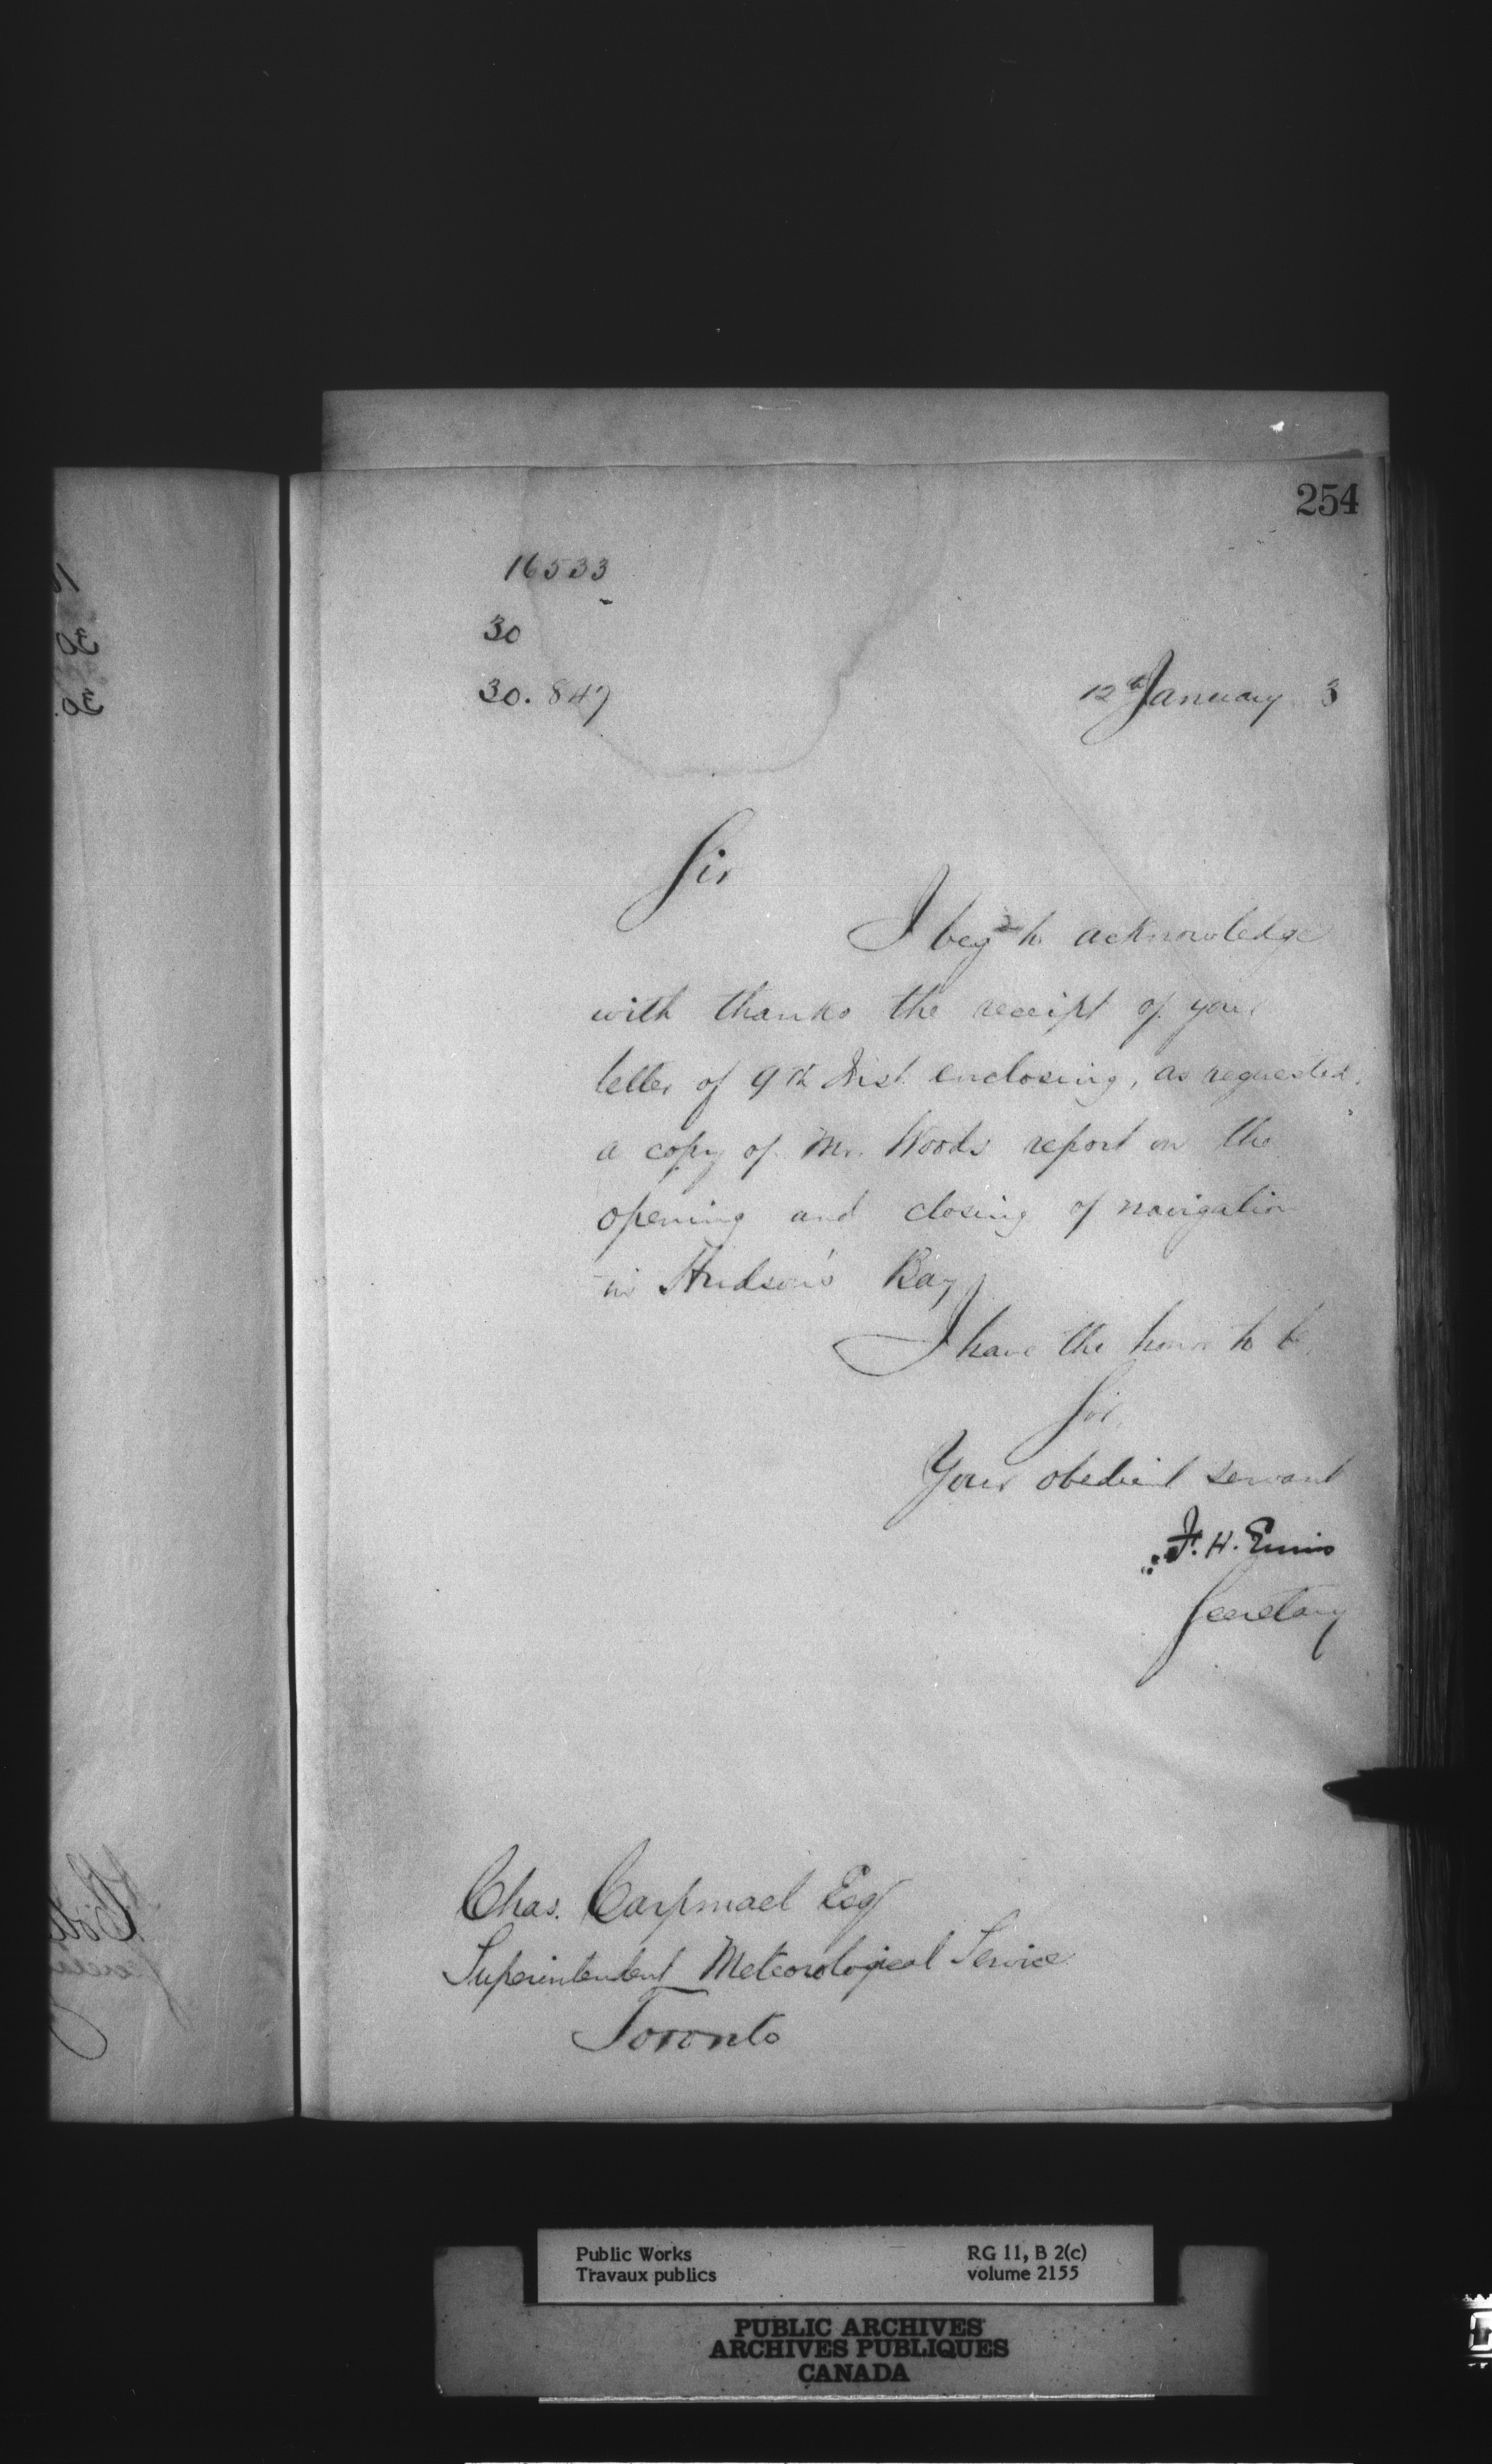 254
16533
30
30. 847
12th January 3
Sir
I beg to acknowledge
with thanks the receipt of your
letter of 9th Inst. enclosing, as requested,
a copy of Mr. Woods report on the
opening and closing of navigation
in Hudson's Bay
I have the honor to be,
Sir,
Your obedient servant
F. H. Ennis
Secretary
Chas. Carpmael Esq
Superintendent Meteorological Service
Toronto
Public Works
Travaux publics
RG 11, B 2(c)
volume 2155
PUBLIC ARCHIVES
ARCHIVES PUBLIQUES
CANADA